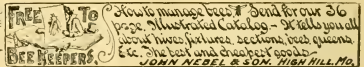 FREE TO
BEE KEEPERS.
How to manage bees. Send for our 36
page Illustrated Catalog. It tells you all
about hives, fixtures, sections, bees, queens
Etc. The best and cheapest goods—
JOHN NEBEL & SON. HIGH HILL, MO.